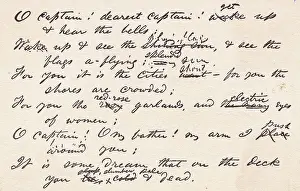 O captain! dearest captain! get up
& hear the bells;
Wake up & see the shining sun, & see the
flying flags
flags a-flying; splendid sun
For you it is the cities shout — for you the
shores are crowded;
For you the red-rose garlands, and the electric
eyes
of women;
O captain! O my father! my arm I push
place
around you;
It is some dream that on the deck
you slumber pale
cold & dead.